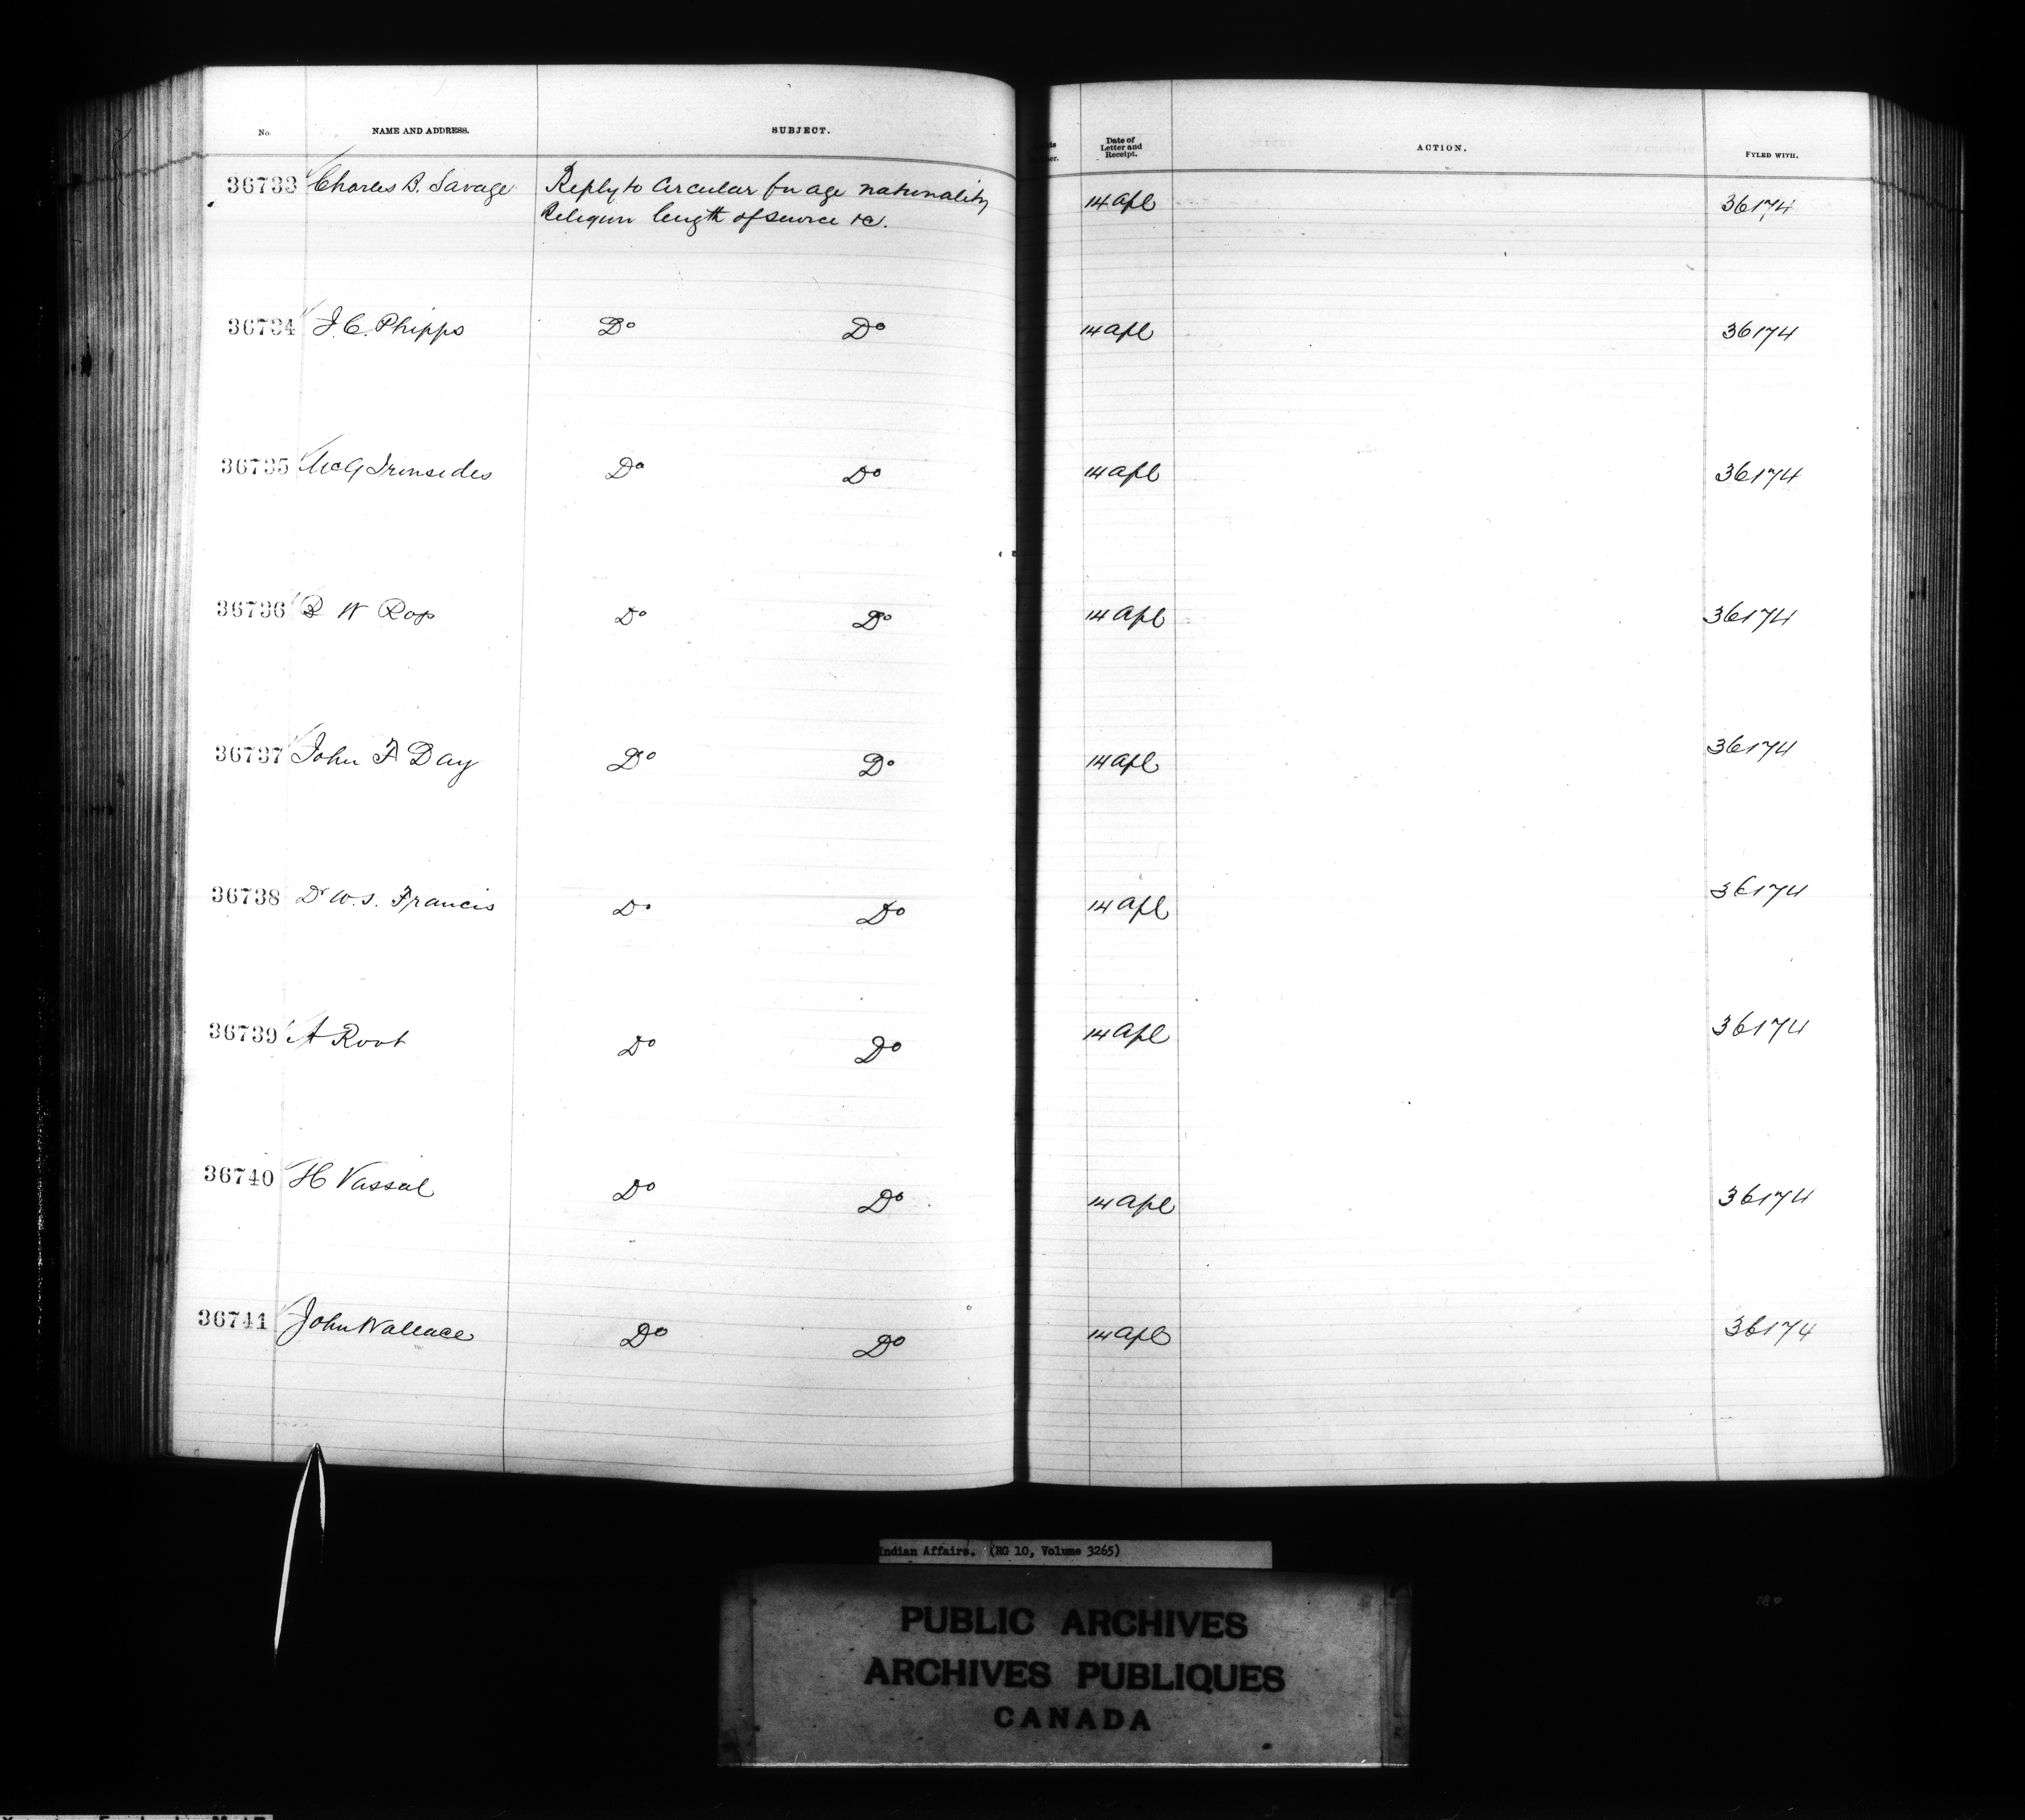 No. NAME AND ADDRESS. SUBJECT. Date of Letter and Receipt. ACTION. FYLED WITH.
36733 Charles B. Savage Reply to Circular for age nationality 14 Apl 36174
Religion length of service &c.
36734 J. C. Phipps Do Do 14 Apl 36174
36735 McG Ironsides Do Do 14 Apl 36174
36736 R W Ross Do Do 14 Apl 36174
36737 John F Day Do Do 14 Apl 36174
36738 Dr W. S. Francis Do Do 14 Apl 36174
36739 A Root Do Do 14 Apl 36174
36740 H Vassal Do Do 14 Apl 36174
36741 John Wallace Do Do 14 Apl 36174
Indian Affairs. (RG 10, Volume 3265)
PUBLIC ARCHIVES
ARCHIVES PUBLIQUES
CANADA